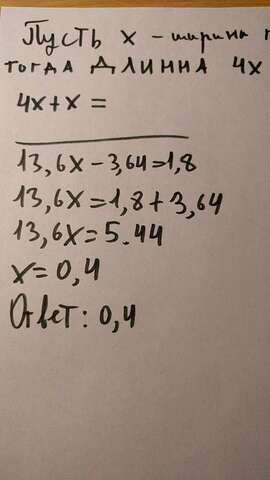 Пусть x - ширина
тогда длинна 4x
4x+x=
13,6x-3,64=1,8
13,6x=1,8+3,64
13,6x=5.44
x=0,4
Ответ: 0,4